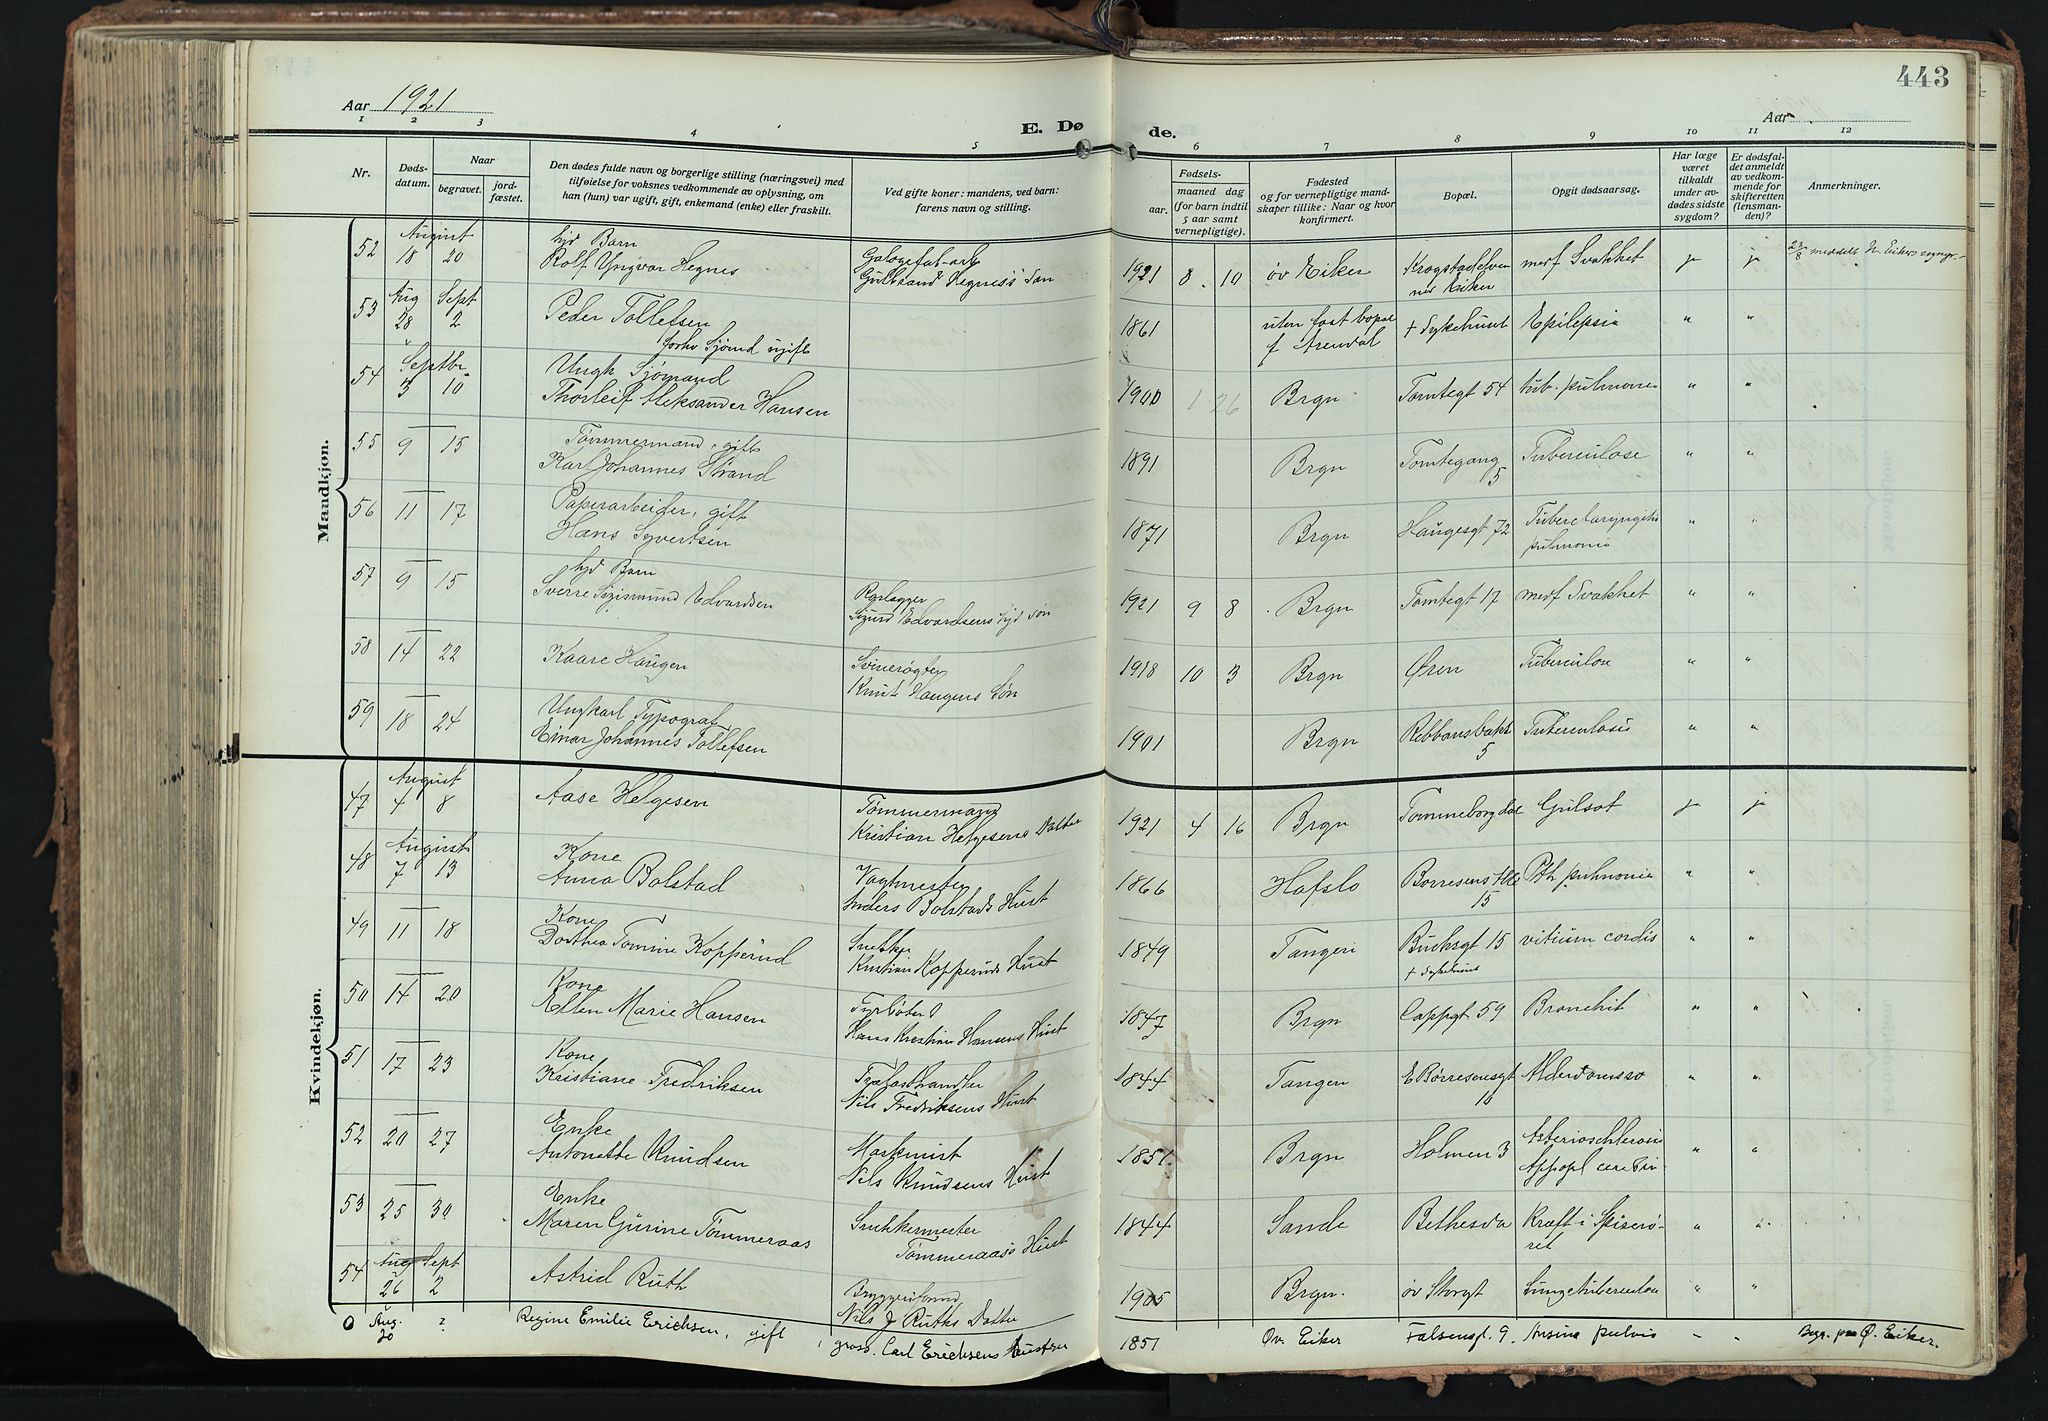 443
Aar 1921
Aar
E. Dø de.
1 2 3 4 5 6 7 8 9 10 11 12
Nr.
Døds-
datum.
Naar
begravet.
jord-
fæstet.
Den dødes fulde navn og borgerlige stilling (næringsvei) med
tilføielse for voksnes vedkommende av oplysning, om
han (hun) var ugift, gift, enkemand (enke) eller fraskilt.
Ved gifte koner: mandens, ved barn:
farens navn og stilling.
Fødsels-
aar.
maaned dag
(for barn indtil
5 aar samt
vernepligtige).
Fødested
og for vernepligtige mand-
skaper tillike: Naar og hvor
konfirmert.
Bopæl.
Opgit dødsaarsag.
Har læge
været
tilkaldt
under av-
dødes sidste
sygdom?
Er dødsfal-
det anmeldt
av vedkom-
mende for
skifteretten
(lensman-
den)?
Anmerkninger.
Mandkjøn.
August
52 18 20
Barn
Rolf Yngvar Hegnes
Gulbrand Hegnes's søn
1921 8 10 øv Eiker
Krogstadelven
Eiker
medf Svakhet ja ja
23/8 meddelt N. Eikers
53 Aug 28 Sept 2
Peder Tollefsen
Sjømd ugift
1861 uten fast bopæl
f Arendal
+ Sykehuset Epilepsia " "
54 Septbr 3 10
Ungk Sjømand
Thorleif Aleksander Hansen
1900 1 26 Brgn Tomtegt 54 tub. pulmonum " "
55 9 15
Tømmermand, gift
Karl Johannes Strand
1891 Brgn Tomtegang 5 Tuberculose " "
56 11 17
Papirarbeider, gift
Hans Syvertsen
1871 Brgn Haugesgt 72 Tuberc laryngitis
pulmonia " "
57 9 15
Barn
Sverre Sigismund Edvardsen
Rørlægger
Sigurd Edvardsens søn
1921 9 8 Brgn Tomtegt 17 medf Svakhet " "
58 14 22
Kaare Haugen
Svinerøgter
Knut Haugens Søn
1918 10 3 Brgn Øren Tuberculose " "
59 18 24
Ungkarl Typograf
Einar Johannes Tollefsen
1901 Brgn 5 Tuberculosis " "
Kvindekjøn.
47 August 4 8
Aase Helgesen
Tømmermand
Kristian Helgesens Datter
1921 4 16 Brgn Gulsot ja ja
48 August 7 13
Kone
Anna Bolstad
Vagtmester
Anders Bolstads Hust
1866 Hafslo Børresens Alle
15 Pth pulmonia " "
49 11 18
Kone
Dorthea Tomine Kopperud
Snekker
Kristian Kopperuds Hust
1849 Tangen Bucksgt 15
+ Sykehus vitium cordis " "
50 14 20
Kone
Ellen Marie Hansen
Fyrbøter
Hans Kristian Hansens Hust
1847 Brgn Cappgt 59 Bronchit " "
51 17 23
Kone
Kristiane Fredriksen
Trælasthandler
Nils Fredriksens Hust
1844 Tangen E Børresensgt Alderdomssv " "
52 20 27
Enke
Antonette Knudsen
Maskinist
Nils Knudsens Hust
1851 Brgn Holmen 3 " "
53 25 30
Enke
Maren Gurine Tømmeraas
Snekkermester
Tømmeraass Hust
1844 Sande Bethesda Kræft i Spiserø-
ret " "
54 Aug 26 Sept 2
Astrid Ruth
Nils J Ruths Datter
1905 Brgn. øv Storgt Lungetuberculose " "
0 Aug. 20 ?
Regine Emilie Erichsen, gift, gross. Carl Erichsens Hustru
1851 Øv. Eiker Falsensg. 9 - - Begr. paa Ø. Eiker.